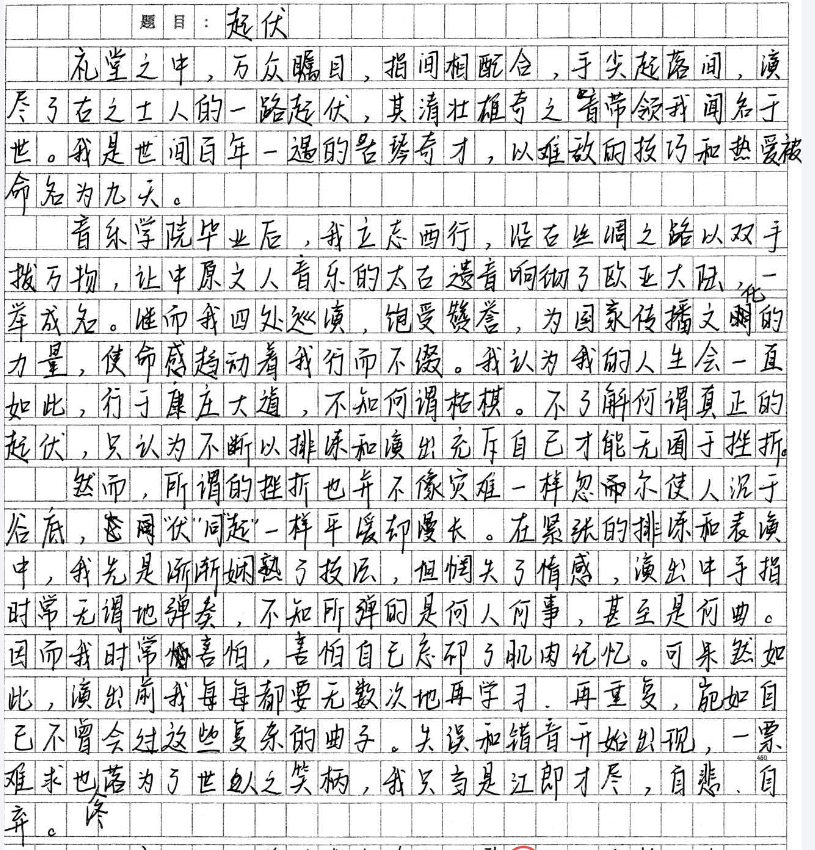 题目：起伏
礼堂之中，万众瞩目，指间相配合，手尖起落间，演
尽了古之士人的一路起伏，其清壮雄奇之音带领我闻名于
世。我是世间百年一遇的古琴奇才，以难敌的技巧和热爱被
命名为九天。
音乐学院毕业后，我立志西行，沿古丝绸之路以双手
拨万物，让中原文人音乐的太古遗音响彻了欧亚大陆，一
举成名。继而我四处巡演，饱受赞誉，为国家传播文化的
力量，使命感趋动着我行而不缀。我认为我的人生会一直
如此，行于康庄大道，不知何谓枯棋。不了解何谓真正的
起伏，只认为不断以排练和演出充斥自己才能无困于挫折。
然而，所谓的挫折也并不像灾难一样忽而尔使人沉于
谷底，“伏”同“起”一样平缓却漫长。在紧张的排练和表演
中，我先是渐渐娴熟了技法，但惘失了情感，演出中手指
时常无谓地弹奏，不知所弹的是何人何事，甚至是何曲。
因而我时常害怕，害怕自己忘却了肌肉记忆。可果然如
此，演出前我每每都要无数次地再学习、再重复，宛如自
己不曾会过这些复杂的曲子。失误和错音开始出现，一票
难求也终落为了世人之笑柄，我只当是江郎才尽，自悲、自
弃。
450